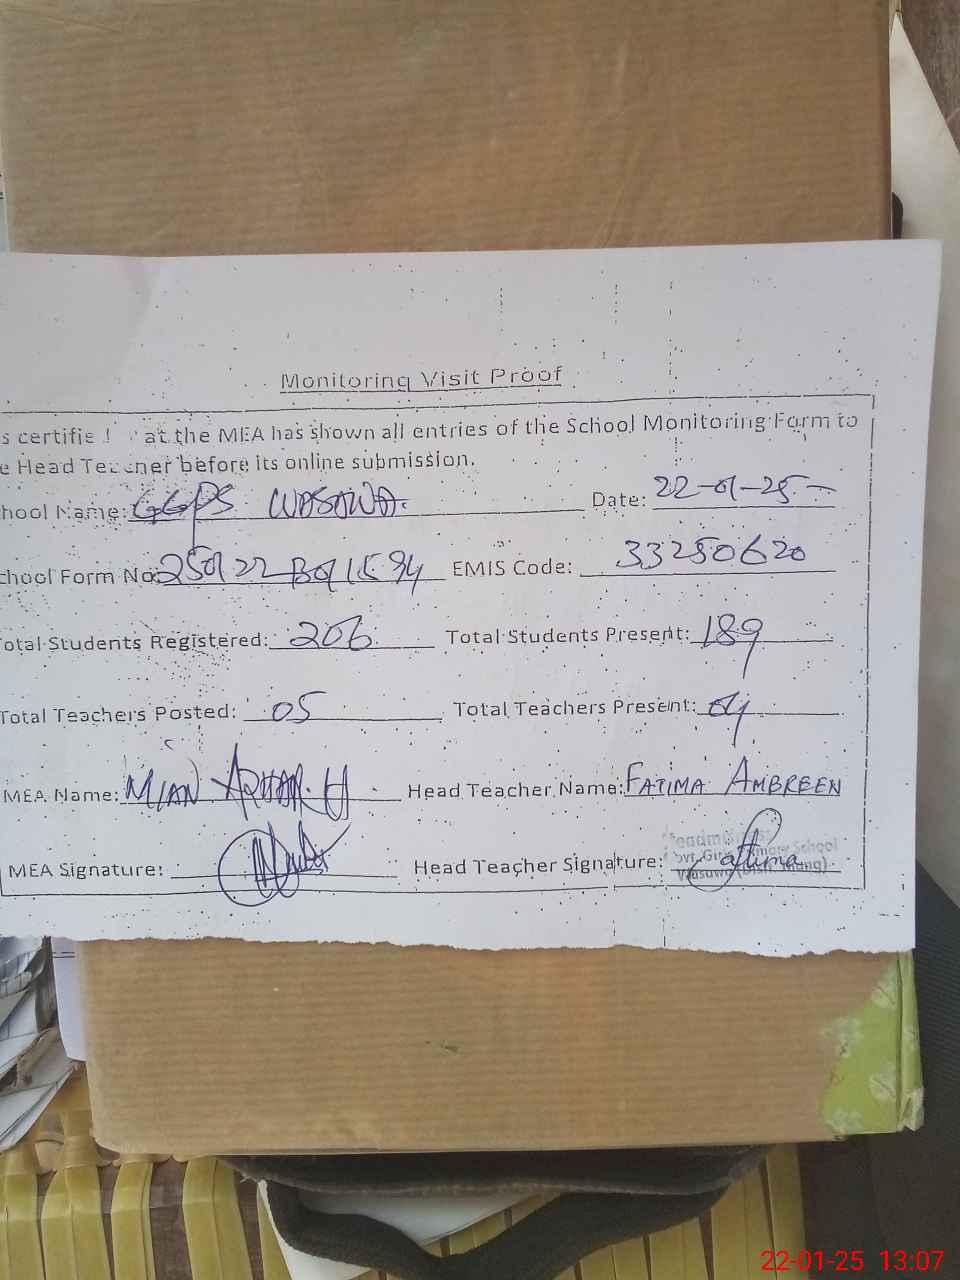 Monitoring Visit Proof
s certifie at the MEA has shown all entries of the School Monitoring Form to
e Head Teacher before its online submission.
hool Name: GGPS WASAWA. Date: 22-01-25-
chool Form No: 250122-B011594 EMIS Code: 33250620
otal Students Registered: 206 Total Students Present: 189
Total Teachers Posted: 05 Total Teachers Present: 04
MEA Name: MIAN Head Teacher Name: FATIMA AMBREEN
MEA Signature: Head Teacher Signature: Fatima
School
22-01-25 13:07